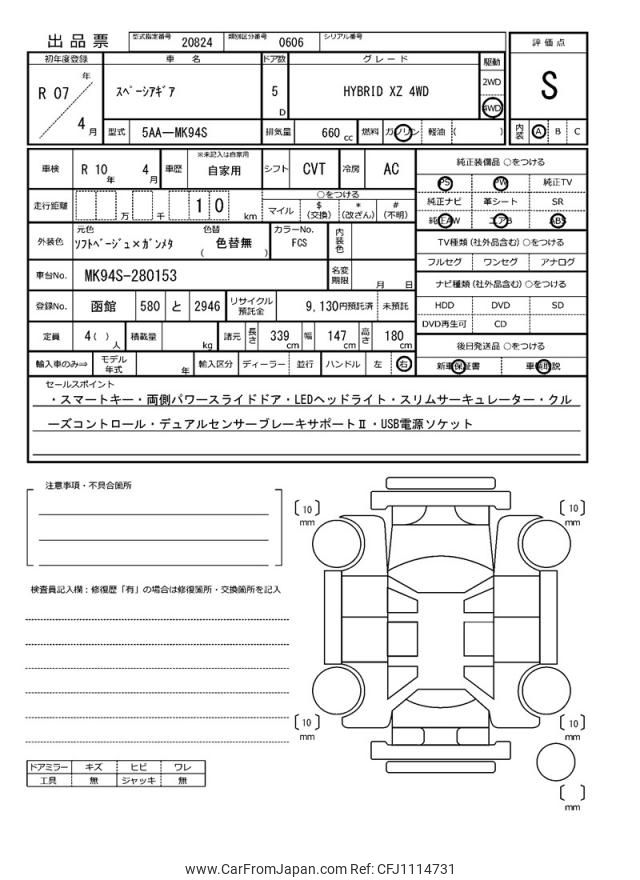 出品票 型式指定番号 20824 類別区分番号 0606 シリアル番号
評価点
S
内装 A B C
初年度登録 車名 ドア数 グレード 駆動
R 07 年 4 月
スペーシアギア 5 D HYBRID XZ 4WD
2WD
4WD
型式 5AA-MK94S 排気量 660 cc 燃料 ガソリン 軽油 ( )
車検 R 10 年 4 月 車歴 ※未記入は自家用 自家用 シフト CVT 冷房 AC
走行距離 万 千 1 0 km
○をつける
マイル $ (交換) * (改ざん) # (不明)
外装色 元色 ソフトベージュ×ガンメタ 色替 ( 色替無 ) カラーNo. FCS 内装色
車台No. MK94S-280153 名変期限 月 日
登録No. 函館 580 と 2946 リサイクル預託金 9,130円預託済 未預託
定員 4( ) 人 積載量 kg 諸元 長さ 339 cm 幅 147 cm 高さ 180 cm
輸入車のみ⇨ モデル年式 年 輸入区分 ディーラー 並行 ハンドル 左 右
純正装備品 ○をつける
PS PW 純正TV
純正ナビ 革シート SR
純正AW エアB ABS
TV種類 (社外品含む) ○をつける
フルセグ ワンセグ アナログ
ナビ種類 (社外品含む) ○をつける
HDD DVD SD
DVD再生可 CD
後日発送品 ○をつける
新車保証書 車輌取説
セールスポイント
・スマートキー・両側パワースライドドア・LEDヘッドライト・スリムサーキュレーター・クル
ーズコントロール・デュアルセンサーブレーキサポートⅡ・USB電源ソケット
注意事項・不具合箇所
検査員記入欄：修復歴「有」の場合は修復箇所・交換箇所を記入
ドアミラー キズ ヒビ ワレ
工具 無 ジャッキ 無
[ 10 ] mm
[ 10 ] mm
[ 10 ] mm
[ 10 ] mm
[ ] mm
www.CarFromJapan.com Ref: CFJ1114731